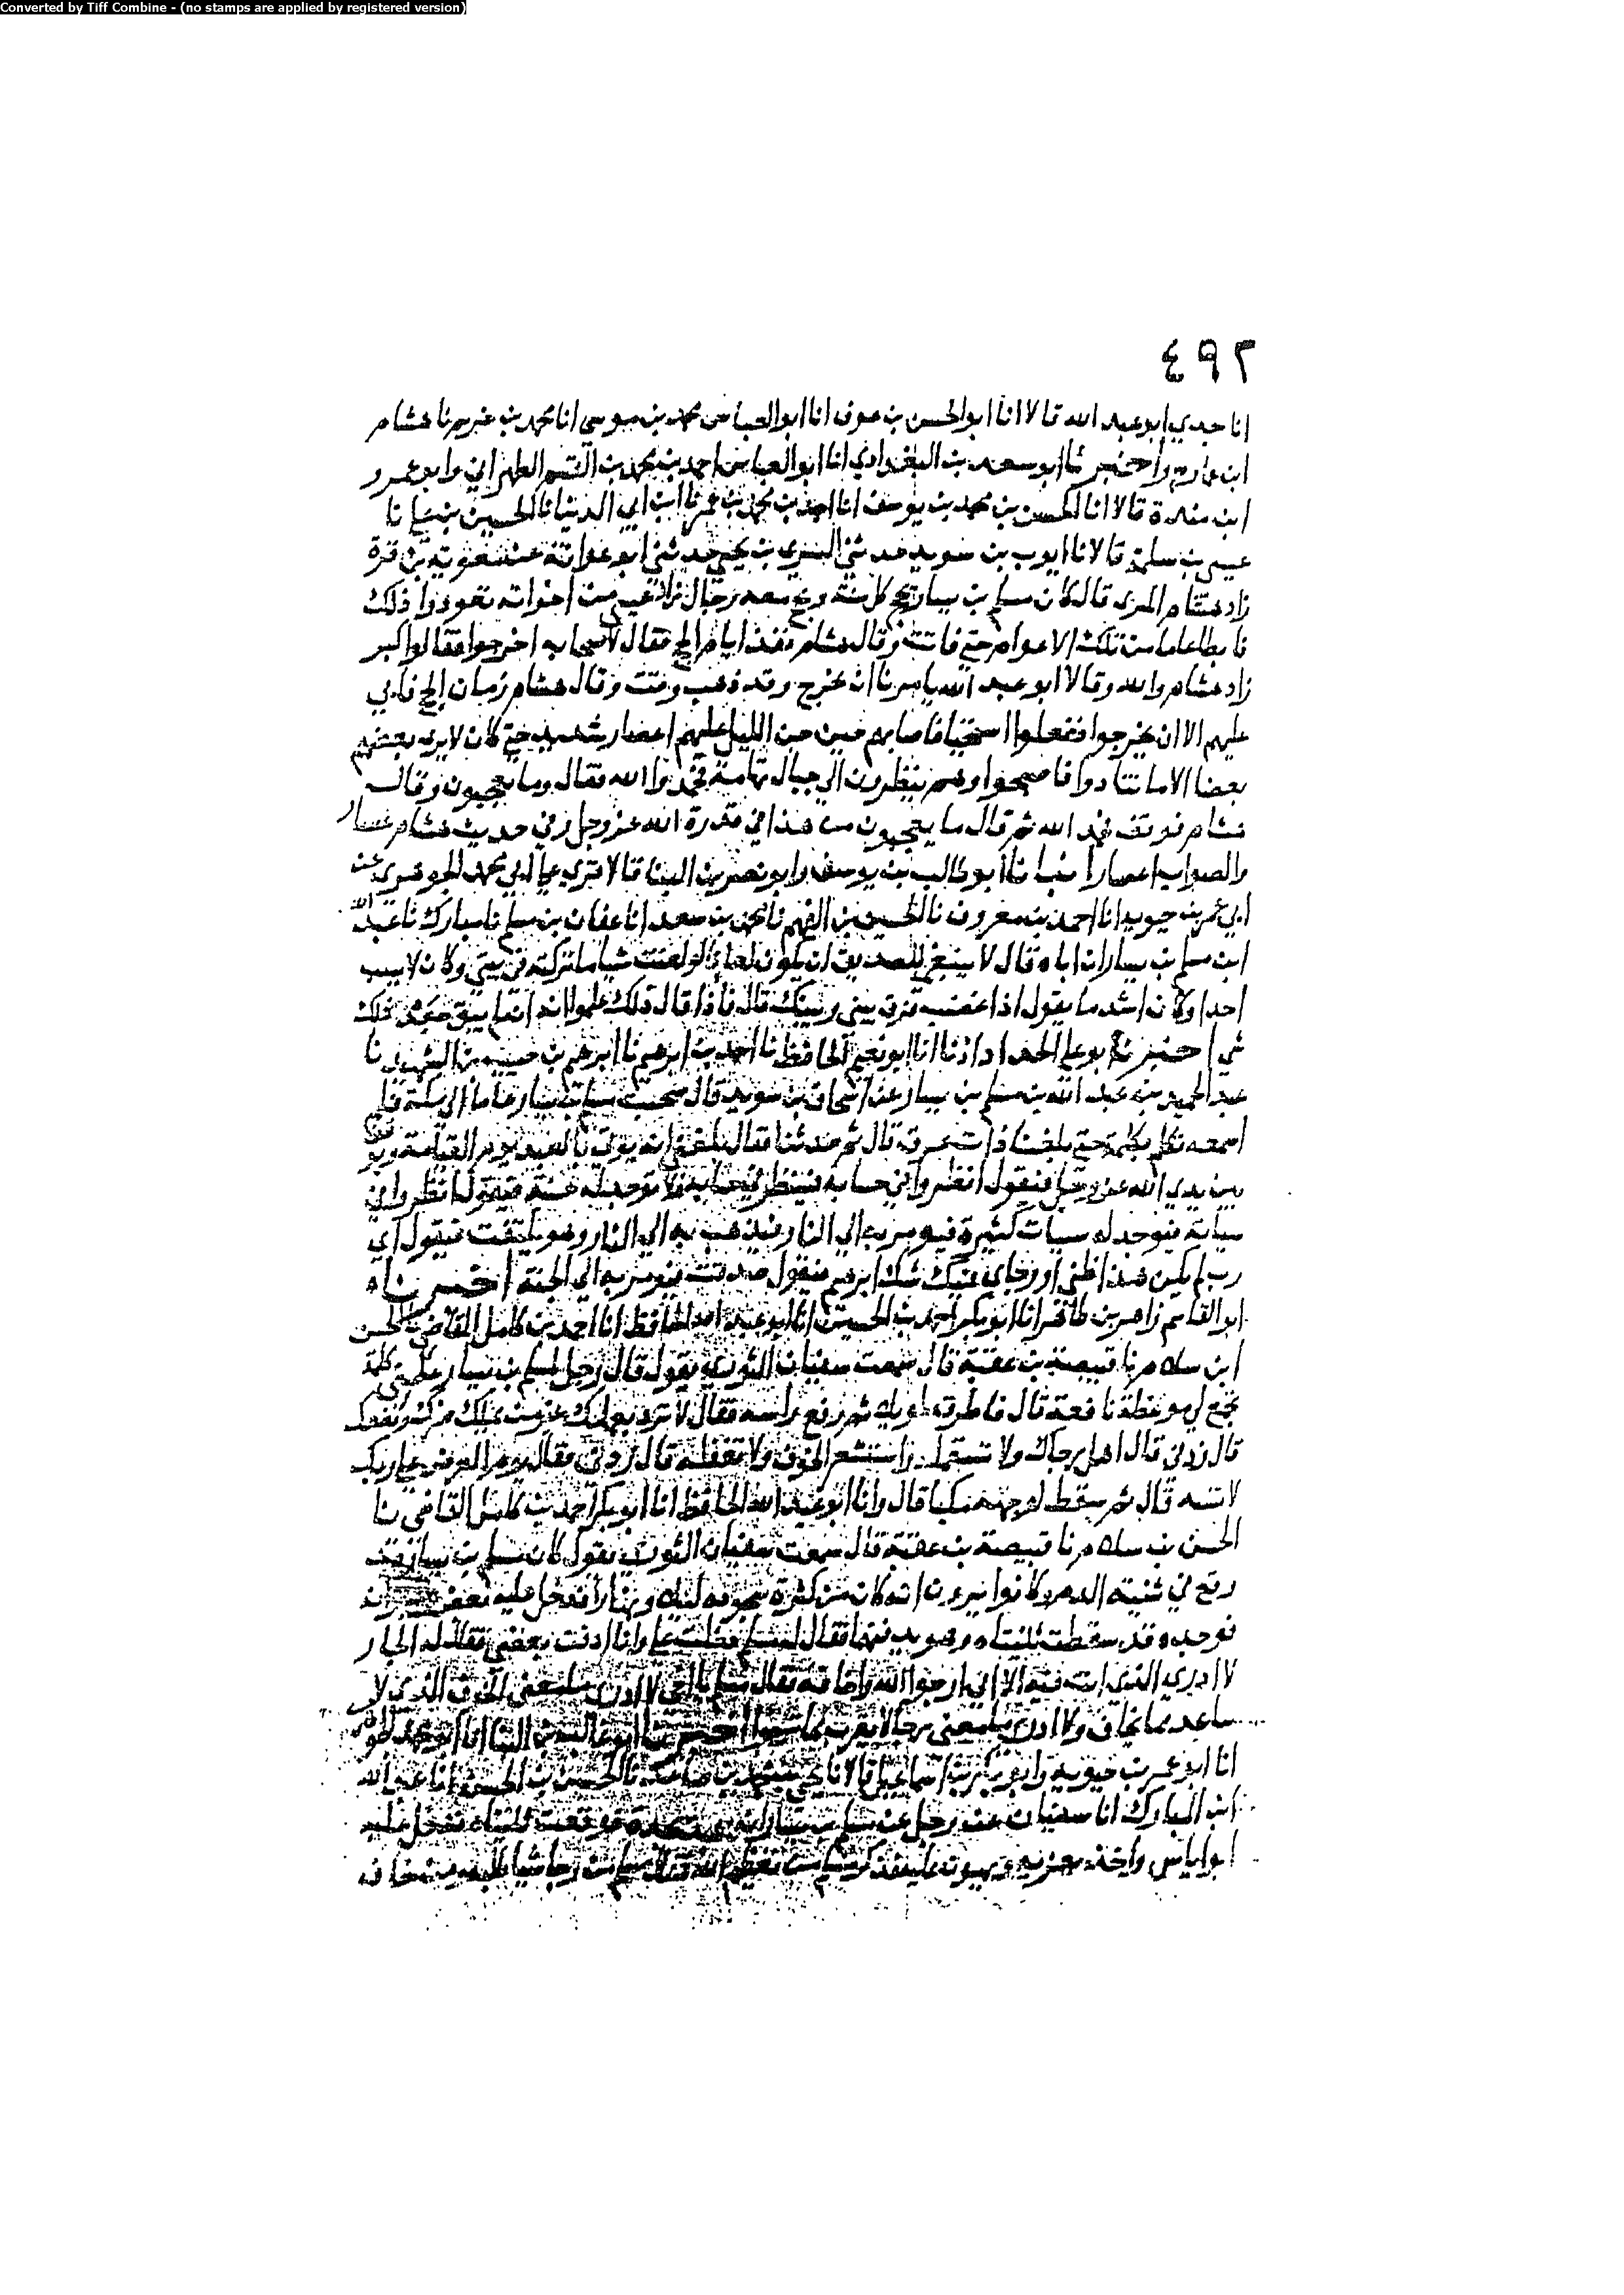 Converted by Tiff Combine - (no stamps are applied by registered version)
٤٩٢
انا جدي ابو عبد الله قالا انا ابو الحسن بن عوف انا ابو العباس محمد بن موسى انا محمد بن خريم نا هشام
ابن عمار ح واخبرنا ابو سعد بن البغدادي انا ابو العباس احمد بن محمد بن القسم الطهراني وابو عمرو
ابن مندة قالا انا الحسن بن محمد بن يوسف انا احمد بن محمد بن عمر نا ابن ابي الدنيا نا الحسين بن
عيسى بن سلمة قالا نا ايوب بن سويد حدثني السري بن يحيى حدثني ابو عوانة عن معوية بن قرة
زاد هشام المزي قال كان مسلم بن يسار يحج كل سنة ويحج معه رجال من اخوانه تعودوا ذلك
فابطا عاما من تلك الاعوام حتى فاتت وقال هشام نفذ ايام الحج فقال لاصحابه اخرجوا فقالوا كبر
زاد هشام والله وقالا ابو عبد الله يامرنا ان نخرج وقد ذهب وقت وقال هشام زمان الحج فابى
عليهم الا ان يخرجوا ففعلوا استحيا فاصابهم حين جن الليل عليهم اعصار شديد حتى كان لا يرى بعضهم
بعضا الا ما تنادوا فاصبحوا وهم ينظرون الى جبال تهامة فحمدوا الله فقال وما تعجبون وقال
هشام فوقف فحمد الله ثم قال ما يعجبون من هذا في قدرة الله عز وجل وفي حديث هشام عصار
والصواب اعصار انبانا ابو طالب بن يوسف وابو نصر بن البنا قالا قرى على ابي محمد الجوهري عن
ابي عمر بن حيويه انا احمد بن معروف نا الحسين بن الفهم نا محمد بن سعد انا عفان بن مسلم نا مبارك نا عبد الله
ابن مسلم بن يسار ان اباه قال لا ينبغي للصديق ان يكون لعانا لو لعنت شيا ما تركته في بيتي وكان لا يسب
احدا وكان اشد ما يقول اذا غضب فرق بيني وبينك قال فاذا قال ذلك علموا انه لم يبق بعد ذلك
شي اخبرنا ابو علي الحداد اذنا انا ابو نعيم الحافظ نا احمد بن ابرهيم نا ابرهيم بن حبيب بن الشهيد نا
عبد الحميد بن عبد الله بن مسلم بن يسار عن اسحاق بن سويد قال صحبت مسلم بن يسار عاما الى مكة فلم
اسمعه تكلم بكلمة حتى بلغنا ذات عرق قال ثم حدثنا فقال بلغني انه يوتى بالعبد يوم القيامة ويوقف
بين يدي الله عز وجل فيقول انظروا في حسناته فينظر في حسناته فلا توجد له حسنة فيقول انظروا في
سياته فيوجد له سيات كثيرة فيومر به الى النار فيذهب به الى النار وهو يلتفت فيقول اي
رب لم يكن هذا ظني او رجاي فيك شك ابرهيم فيقول صدقت فيومر به الى الجنة اخبرناه
ابو القاسم زاهر بن طاهر انا ابو بكر احمد بن الحسين انا ابو عبد الله الحافظ انا احمد بن كامل القاضي نا الحسن
ابن سلام نا قبيصة بن عقبة قال سمعت سفيان الثوري يقول قال رجل لمسلم بن يسار علمني كلمة
تجمع لي موعظة نافعة قال فاطرق طويلا ثم رفع راسه فقال لا ترد بعملك غير من يملك ضرك ونفعك
قال زدني قال اهل رجاك ولا تستعمله واستشعر الخوف ولا تغفله قال زدني فقال يوم العرض على ربك
لا تنسه قال ثم سقط لوجهه مكبا قال وانا ابو عبد الله الحافظ انا ابو بكر احمد بن كامل القاضي نا
الحسن بن سلام نا قبيصة بن عقبة قال سمعت سفيان الثوري يقول كان مسلم بن يسار قد
وقع في ثنيته الدم وكانوا يرون انه كان من كثرة سجوده ليلا ونهارا فدخل عليه بعض جيرانه
فوجده وقد سقطت ثنيتاه وهو يدفنها فقال له مسلم وانا ادفن بعضي فقال له الجار
لا ادري الذي انت فيه الا اني ارجو الله واخافه فقال مسلم يا اخي لا ادري ما معنى الخوف الذي لا
يباعد مما يخاف ولا ادري ما معنى رجا لا يقرب مما يرجوا اخبرنا ابو غالب بن البنا انا ابو محمد الجوهري
انا ابو عمر بن حيوية وابو بكر بن اسماعيل قالا نا يحيى بن محمد بن صاعد نا الحسين بن الحسن انا عبد الله
ابن المبارك انا سفيان عن رجل عن مسلم بن يسار انه سجد سجدة فوقعت ثنيتاه فدخل عليه
ابو اياس واخذ يعزيه ويهون عليه فذكر مسلم من تعظيم الله فقال مسلم من رجا شيا طلبه ومن خاف